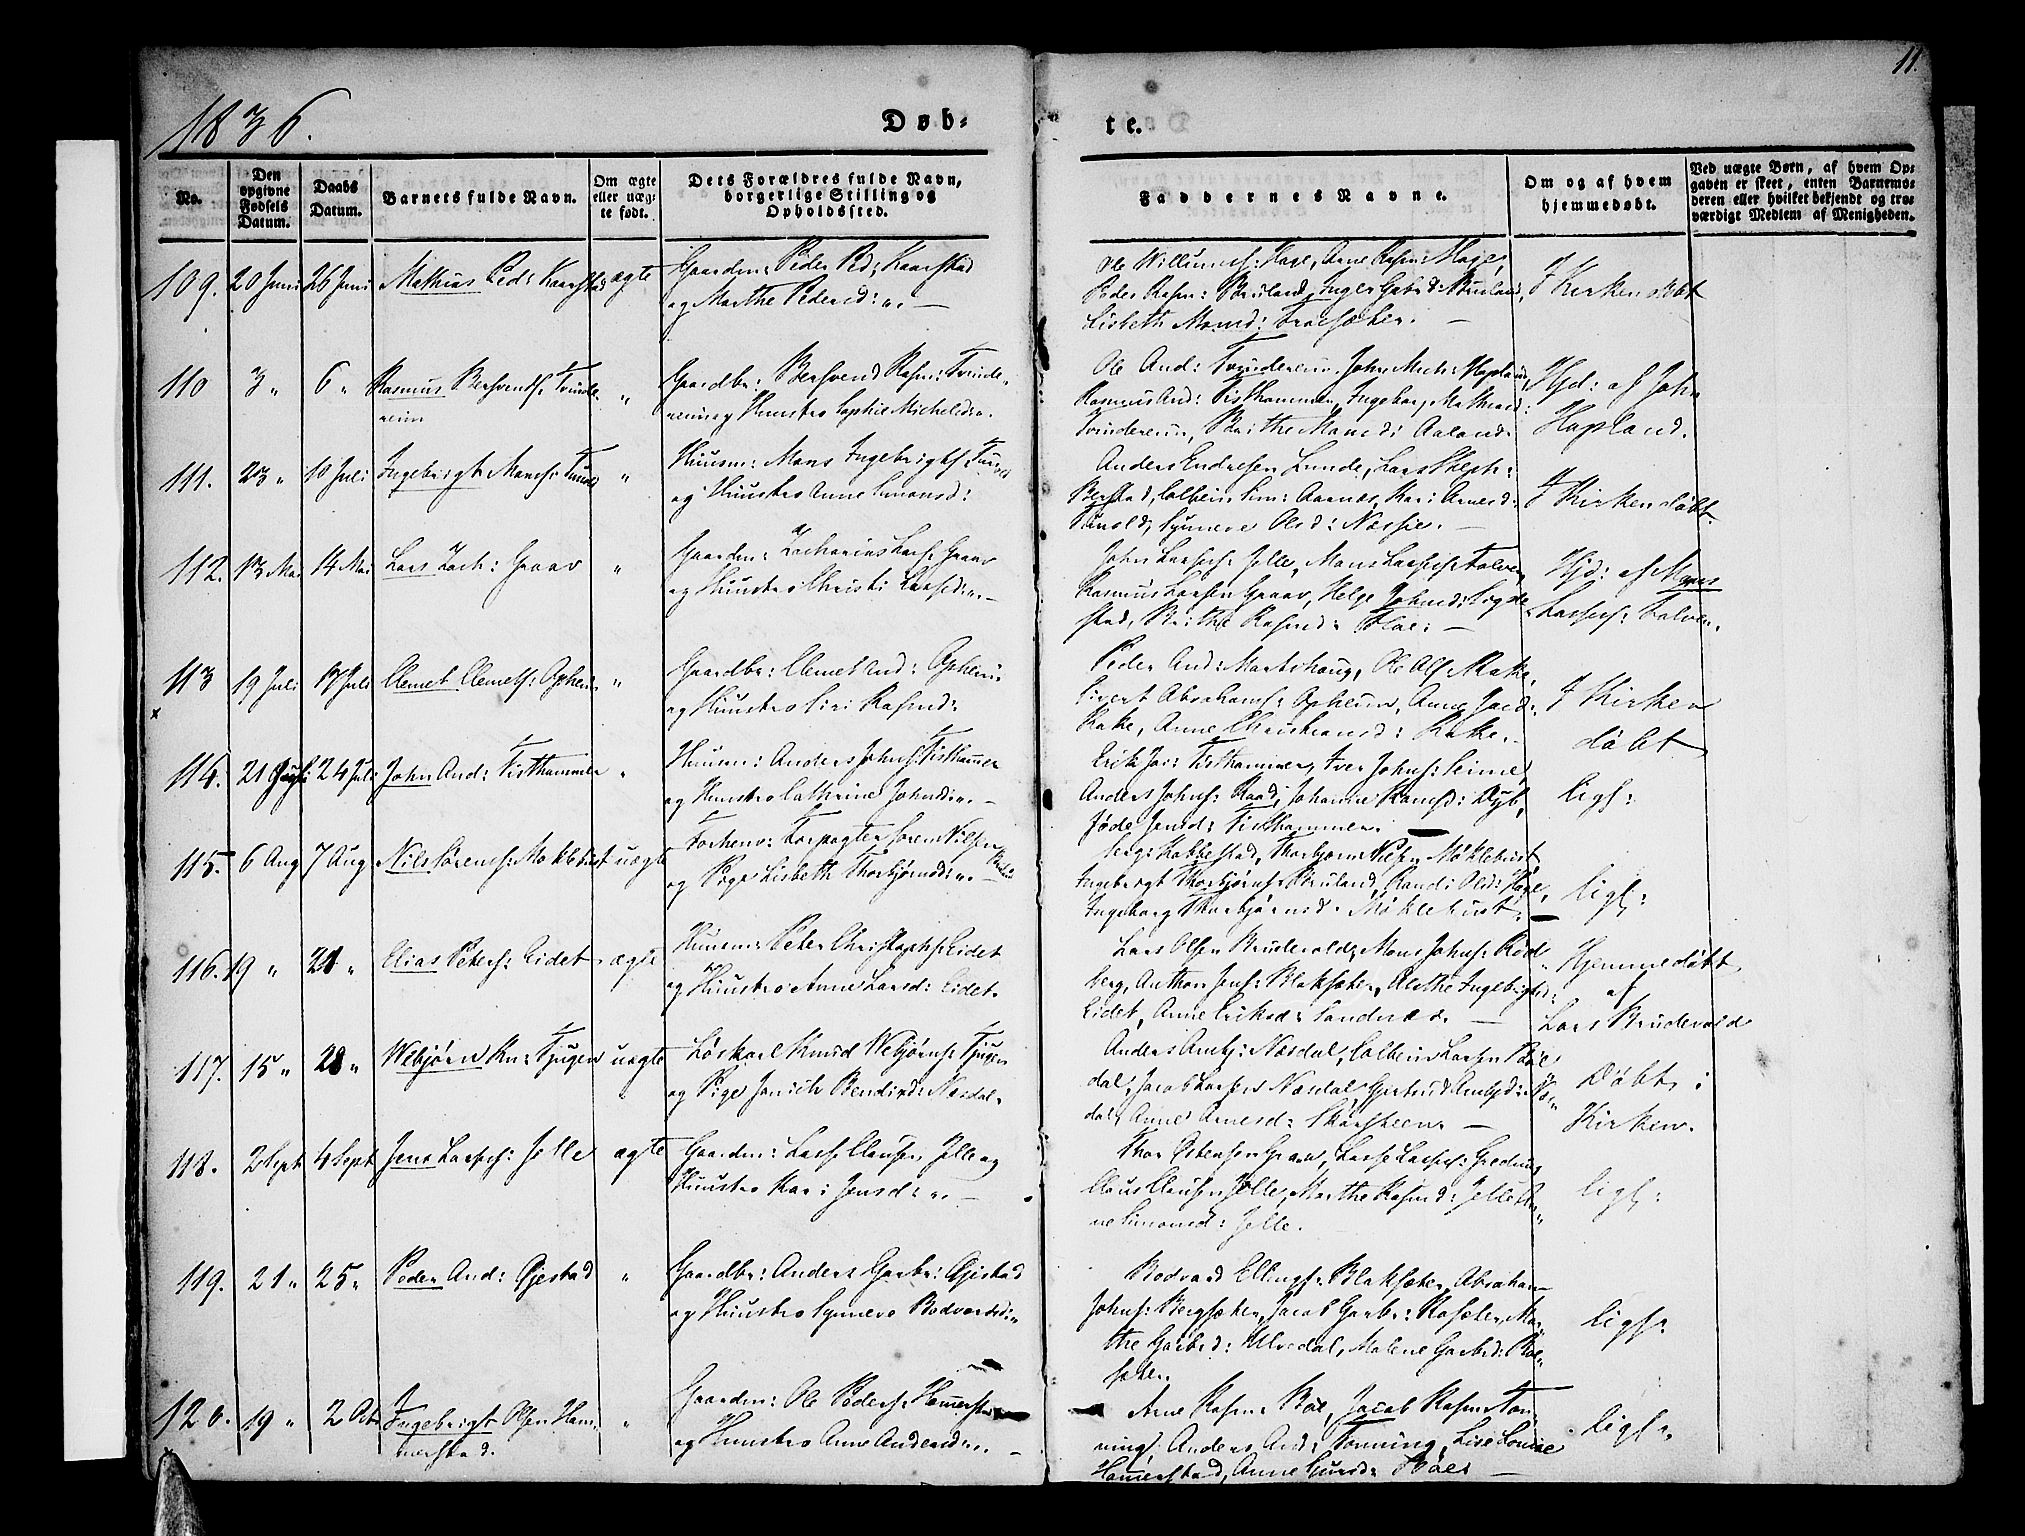 1836.
Døb-
te.
11.
No.
Den opgivne Fødsels Datum.
Daabs Datum.
Barnets fulde Navn.
Om ægte eller uægte født.
Dets Forældres fulde Navn, borgerlige Stilling og Opholdssted.
Faddernes Navne.
Om og af hvem hjemmedøbt.
Ved uægte Børn, af hvem Opgaven er skeet, enten Barnemoderen eller hvilket bekjendt og troværdigt Medlem af Menigheden.
109. 20 Juni 26 Juni Mathias Ped: Kaarstad ægte Gaardm: Peder Ped: Kaarstad
og Marthe Pedersd: „. —
Ole Willumsf: Hage, Anne Rasm:
Peder Rasm: Bruland, Inger Gabrd: Bruland,
Lisbeth Monsd:
I Kirken døbt
110 3 „ 6 „ Rasmus Bersvends: Tvinde „ Gaardbr: Bersvend Rasm: Tvinde„
reim
reim og Huustro Sophie Michelsd: „.
Ole And: Tvindereim, John Mich: Hopland,
Rasmus And: Tisthammer, Ingeborg Mathiasd:
Tvindereim, Brithe Monsd: Aaland.
Hjd: af John
Hopland.
111. 23 „ 10 Juli Ingebrigt Monsf: „ Huusm: Mons Ingebrigtf:
og Huustro Anne Simonsd:
Anders Endresen Lunde, Lars Steph:
Colbein Sim: Aarnæs, Kari Arnesd:
Synneve Olsd: Næssje. —
I Kirken døbt.
112. 13 Mai 14 Mai Lars Zach: Graav „ Gaardm: Zacharias Lassf: Graav
og Huustro Christi Larsd: „. —
John Lassesf: Jelle, Mons Lassesf: Folven,
Rasmus Lassen Graav, Helge Johnsd: Sigde„
stad, Brithe Rasmd: Floe. —
Hjd: af Mons
Lassesf: Folven.
113 19 Juli 17 Juli Clemet Clemetf: Opheim „ Gaardbr: Clemet And: Opheim
og Huustro Siri Rasmd:
Peder And: Marthoug, Ole Olf: Rake,
Sivert Abrahamf: Opheim, Anne Jacd:
Rake, Anne Christiansd: Rake.
I Kirken
døbt
x
114. 21 Juli 24 Juli John And: Tisthammer „ Huusm: Anders Johnf: Tisthammer
og Huustro Cathrine Johnsd: „. —
Erik Jac: Tisthammer, Iver Johnf: Seime,
Anders Johnf: Raad, Johanne Hansd:
Jensd: Tisthammer.
ligs:
115. 6 Aug 7 Aug Nils Sørensf: Moklebust uægte Forhenv: Forpagter Søren Nilsen
og Pige Lisbeth Thorbjørnsd: „. —
Thorbjørn Nilsen Møklebust
Ingebrigt Thorbjørnf: Bruland, Randi Olsd:
Ingeborg Thorbjørnsd: Møklebust.
ligs:
116. 19 „ 21 „ Elias Petersf: Eidet ægte Huusm: Peter Christophf: Eidet
og Huustro Anne Larsd: Eidet.
Lars Olsen Bruuvold, Mons Johnf: Rød„
berg, Anthon Jenf: Blaksæter, Marthe Ingebrigtsd:
Eidet, Anne Eriksd: Sandnæs. —
Hjemmedøbt
af
Lars
117. 15 „ 28 „ Webjørn Kn: Tjugen uægte Løskarl Knud Webjørnf: Tjugen
og Pige Janich Bendixd: Næsdal.
Anders Næsdal, Colbein Larsen
dal, Jacob Lassesf Næsdal, Gjertrud
dal, Anne Arnesd: Skaarsteen. —
Døbt i
Kirken.
118. 2 Sept 4 Sept Jens Lassesf: Jelle ægte Gaardm: Lasse Clausen Jelle og
Huustro Kari Jensd: „. —
Thor Østensen Graav, Lasse Lassesf:
Claus Clausen Jelle, Marthe Rasmd: Jelle, An„
ne Simonsd: Jelle.
ligs:
119. 21 „ 25 „ Peder And: Gjestad „ Gaardbr: Anders Gaabr: Gjestad
og Huustro Synneve Bodvarsd: „
Bodvard Ellingf: Blaksæter, Abraham
Johnf: Bergsæter, Jacob Gaabr: Raksæter, Mar„
the Gaabrd: Ulvedal, Malene Gaabrd:
sæter.
ligs:
120. 19 „ 2 Octr Ingebrigt Olsen Ham„ „ Gaardm: Ole Pedersf: Hammerstad
merstad.
og Huustro Anne Andersd: „. —
Arne Rasm: Bøe, Jacob Rasm: Ton„
ning, Anders And: Tonning, Lise Lovise
Hammerstad, Anne Gunsd: Bøe. —
ligs: